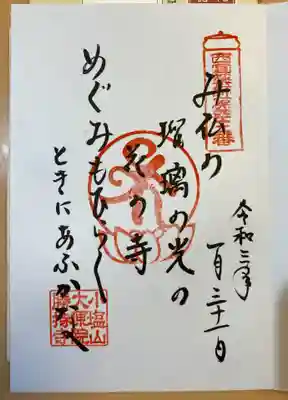 令和三年
一月三十一日
み仏の
瑠璃の光の
花の寺
めぐみもひらく
ときにあふかな
小塩山
大原院
勝持寺